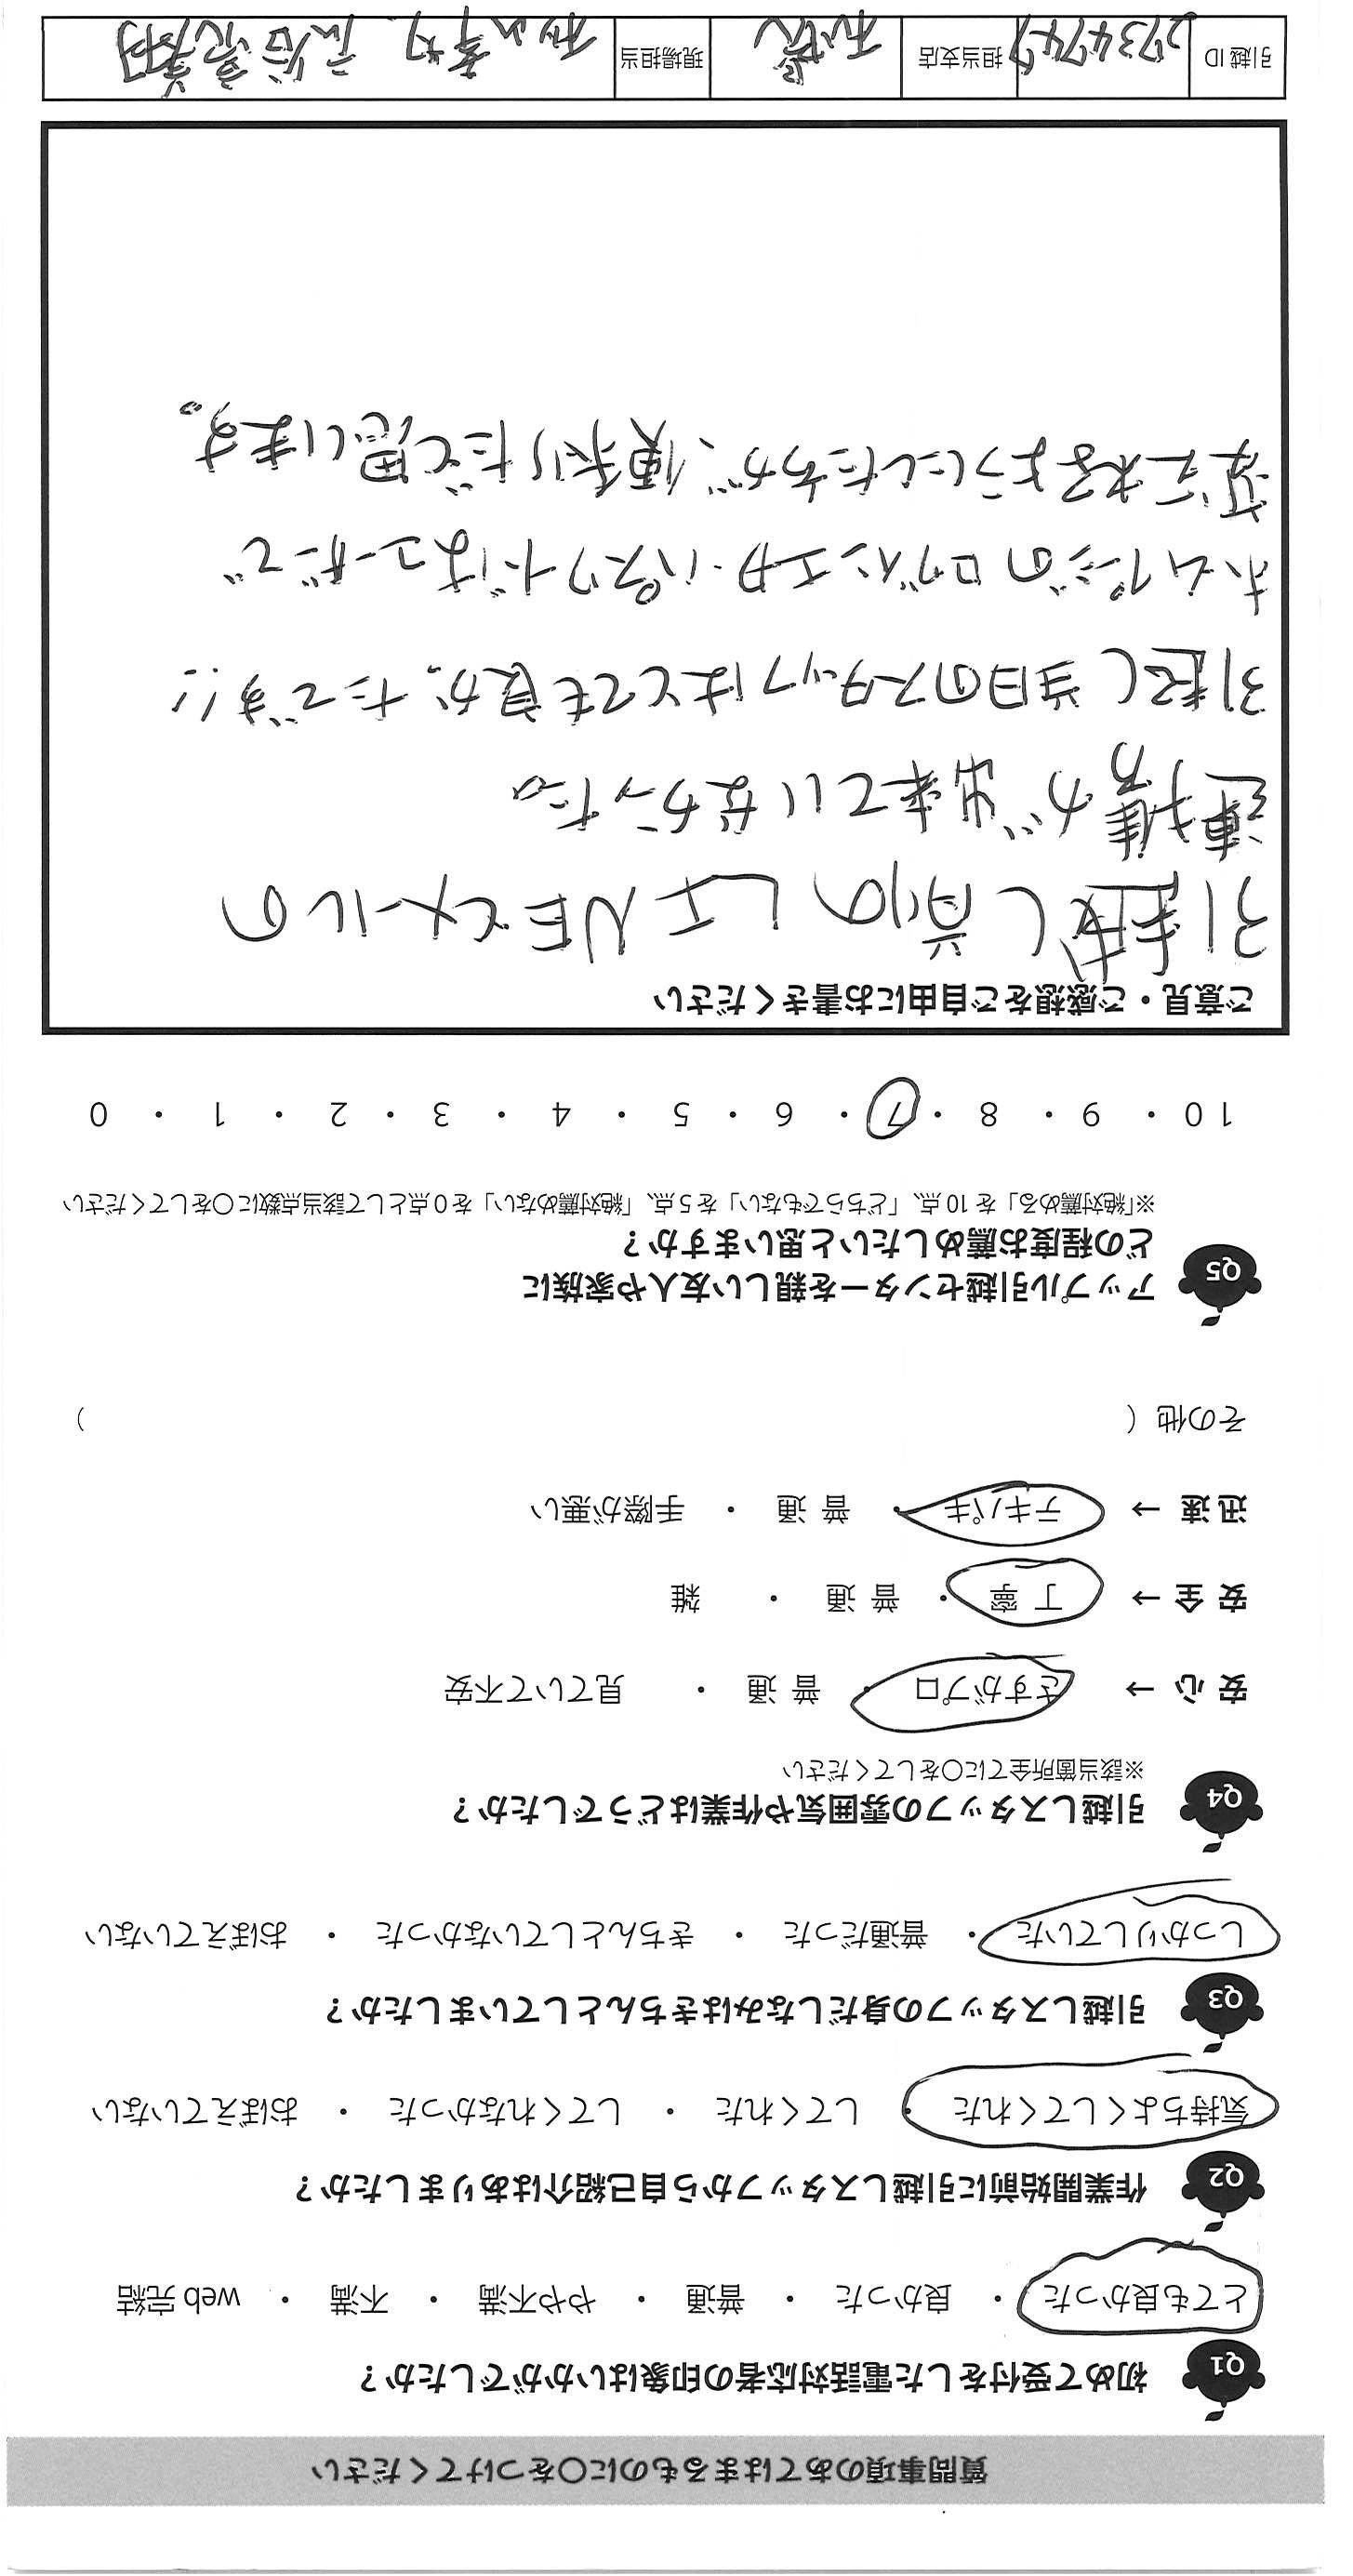 質問事項のあてはまるものに〇をつけてください
Q1 初めて受付をした電話対応者の印象はいかがでしたか？
とても良かった ・ 良かった ・ 普通 ・ やや不満 ・ 不満 ・ web 完結
Q2 作業開始前に引越しスタッフから自己紹介はありましたか？
気持ちよくしてくれた ・ してくれた ・ してくれなかった ・ おぼえていない
Q3 引越しスタッフの身だしなみはきちんとしていましたか？
しっかりしていた ・ 普通だった ・ きちんとしていなかった ・ おぼえていない
Q4 引越しスタッフの雰囲気や作業はどうでしたか？
※該当箇所全てに〇をしてください
安心 → さすがプロ ・ 普通 ・ 見ていて不安
安全 → 丁寧 ・ 普通 ・ 雑
迅速 → テキパキ ・ 普通 ・ 手際が悪い
その他（ ）
Q5 アップル引越センターを親しい友人や家族に
どの程度お薦めしたいと思いますか？
※「絶対薦める」を 10 点、「どちらでもない」を 5 点、「絶対薦めない」を 0 点として該当点数に〇をしてください
10 ・ 9 ・ 8 ・ 7 ・ 6 ・ 5 ・ 4 ・ 3 ・ 2 ・ 1 ・ 0
ご意見・ご感想をご自由にお書きください
引越し前の LINEとメールの
連携が出来ていなかった。
引越し当日のスタッフはとても良かったです!!
ホームページのログイン パスワードはユーザーで
変えれるようにした方が、便利だと思います。
引越ID 2734747 担当支店 現場担当